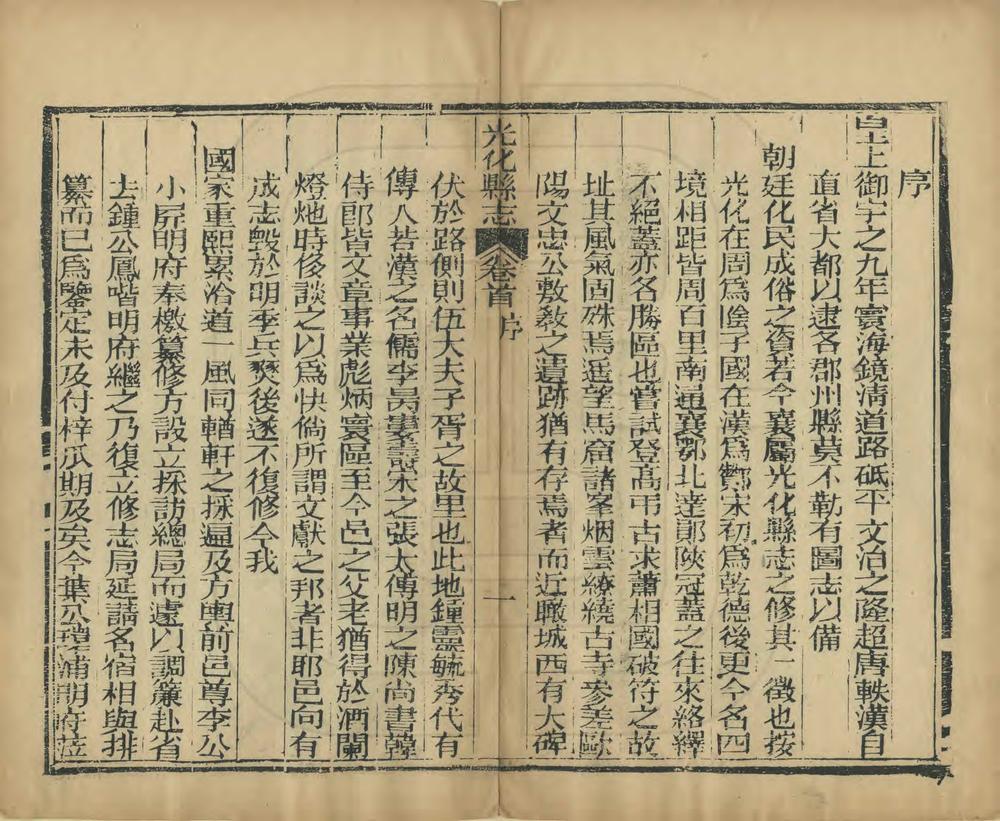 序
皇上御宇之九年寰海鏡清道路砥平文治之隆超唐軼漢自
直省大都以逮各郡州縣莫不勒有圖志以備
朝廷化民成俗之資若今襄屬光化縣志之修其一徵也按
光化在周爲陰子國在漢爲酇宋初爲乾德後更今名四
境相距皆周百里南通襄鄂北達鄖陝冠蓋之往來絡繹
不絕蓋亦名勝區也嘗試登高弔古求蕭相國破符之故
址其風氣固殊焉遥望馬窟諸峯烟雲繚繞古寺參差歐
陽文忠公敷敎之遺跡猶有存焉者而近瞰城西有大碑
光化縣志 卷首 序 一
伏於路側則伍大夫子胥之故里也此地鍾靈毓秀代有
傳人若漢之名儒李昺畢諶宋之張太傅明之陳尚書韓
侍郎皆文章事業彪炳寰區至今邑之父老猶得於酒闌
燈灺時侈談之以爲快倘所謂文獻之邦者非耶邑向有
成志毀於明季兵燹後遂不復修今我
國家重熙累洽道一風同輶軒之採遍及方輿前邑尊李公
小屏明府奉檄纂修方設立採訪總局而遽以調簾赴省
去鍾公鳳喈明府繼之乃復立修志局延請名宿相與排
纂而已爲鑒定未及付梓瓜期及矣今葉公瑾浦明府莅